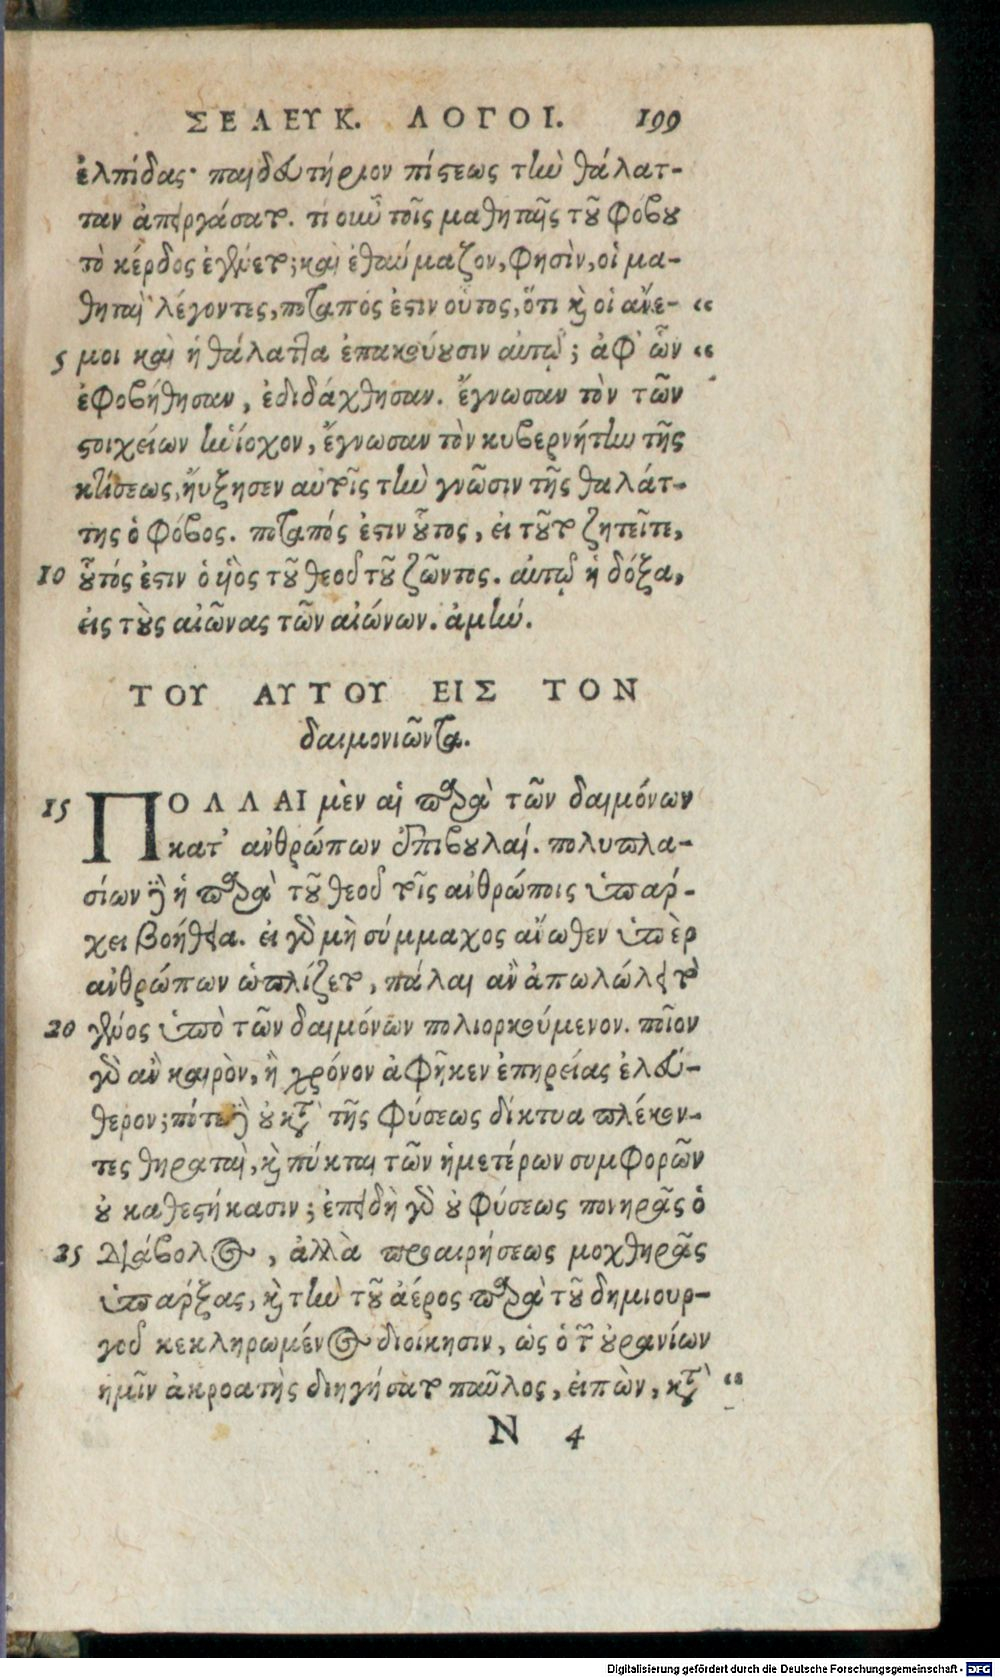 ΣΕΛΕΥΚ. ΛΟΓΟΙ. 199
ἐλπίδας· παιδευτήριον πίστεως τὴν θάλατ-
ταν ἀπειργάσατο. τί οὖν τοῖς μαθηταῖς τοῦ φόβου
τὸ κέρδος ἐγένετο; καὶ ἐθαύμαζον, φησὶν, οἱ μα-
θηταὶ λέγοντες, ποταπός ἐστιν οὗτος, ὅτι καὶ οἱ ἄνε- “
5 μοι καὶ ἡ θάλαττα ἐπακούουσιν αὐτῷ; ἀφ' ὧν “
ἐφοβήθησαν, ἐδιδάχθησαν. ἔγνωσαν τὸν τῶν
στοιχείων ἡνίοχον, ἔγνωσαν τὸν κυβερνήτην τῆς
κτίσεως, ηὔξησεν αὐτοῖς τὴν γνῶσιν τῆς θαλάτ-
της ὁ φόβος. ποταπός ἐστιν οὗτος, εἰ τοῦτο ζητεῖτε,
10 οὗτός ἐστιν ὁ υἱὸς τοῦ θεοῦ τοῦ ζῶντος. αὐτῷ ἡ δόξα,
εἰς τοὺς αἰῶνας τῶν αἰώνων. ἀμήν.
ΤΟΥ ΑΥΤΟΥ ΕΙΣ ΤΟΝ
δαιμονιῶντα.
15 ΠΟΛΛΑΙ μὲν αἱ παρὰ τῶν δαιμόνων
κατ' ἀνθρώπων ἐπιβουλαί. πολυπλα-
σίων δὲ ἡ παρὰ τοῦ θεοῦ τοῖς ἀνθρώποις ὑπάρ-
χει βοήθεια. εἰ γὰρ μὴ σύμμαχος ἄνωθεν ὑπὲρ
ἀνθρώπων ὡπλίζετο, πάλαι ἂν ἀπωλώλει τὸ
20 γένος ὑπὸ τῶν δαιμόνων πολιορκούμενον. ποῖον
γὰρ ἂν καιρὸν, ἢ χρόνον ἀφῆκεν ἐπηρείας ἐλεύ-
θερον; πότε δὲ οὐ κατὰ τῆς φύσεως δίκτυα πλέκον-
τες θηραταὶ, καὶ πύκται τῶν ἡμετέρων συμφορῶν
οὐ καθεστήκασιν; ἐπειδὴ γὰρ οὐ φύσεως πονηρᾶς ὁ
25 διάβολος, ἀλλὰ προαιρήσεως μοχθηρᾶς
ὑπάρξας, καὶ τὴν τοῦ ἀέρος παρὰ τοῦ δημιουρ-
γοῦ κεκληρωμένος διοίκησιν, ὡς ὁ τῶν οὐρανίων
ἡμῖν ἀκροατὴς διηγήσατο παῦλος, εἰπὼν, κατὰ “
N 4
Digitalisierung gefördert durch die Deutsche Forschungsgemeinschaft - DFG